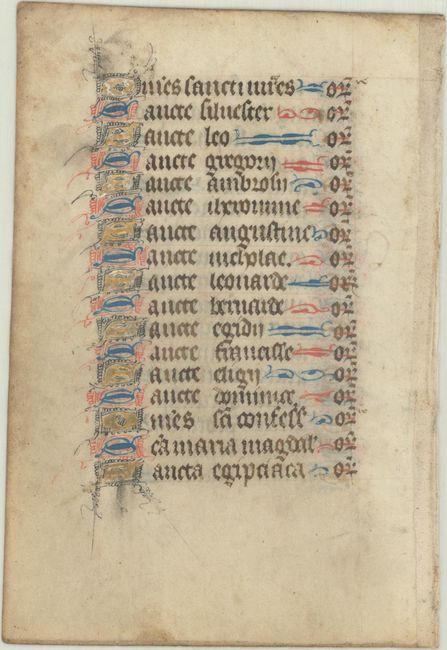 Omēs sancti mr̄es or̄
Sancte siluester or̄
Sancte leo or̄
Sancte gregorij or̄
Sancte ambrosij or̄
Sancte iheronime or̄
Sancte augustine or̄
Sancte nicholae. or̄
Sancte leonarde or̄
Sancte bernarde or̄
Sancte egidij or̄
Sancte francisse or̄
Sancte eligij or̄
Sancte dominice or̄
Omēs sc̄i confess̄ or̄
Sc̄a maria magdal̄ or̄
Sancta egipciaca or̄